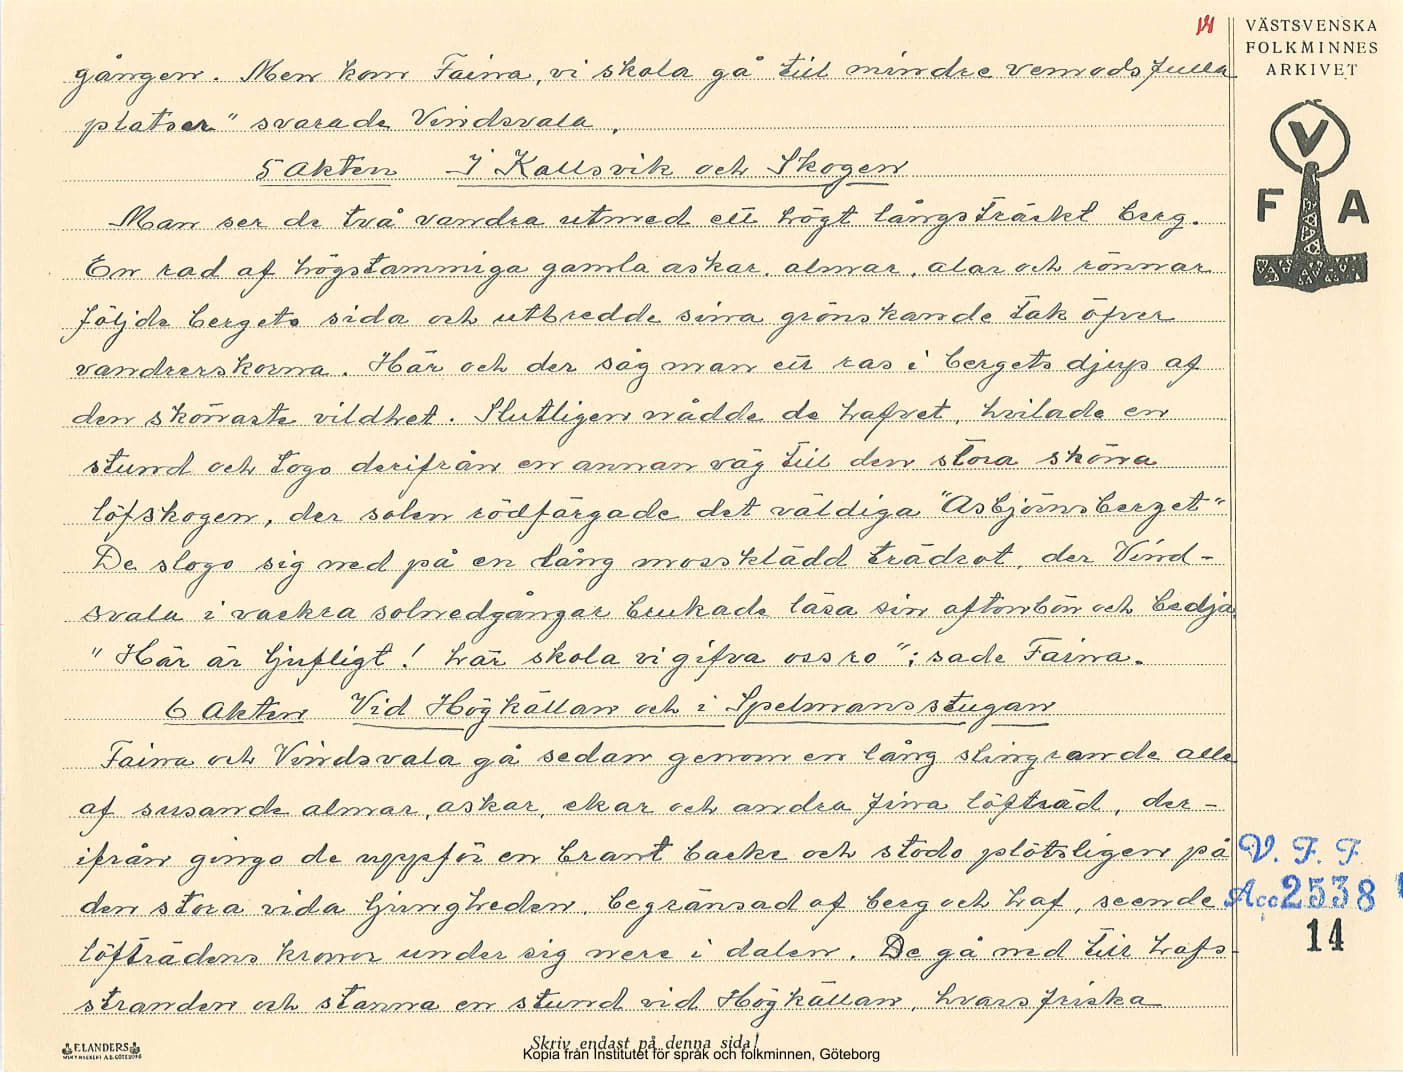 14
VÄSTSVENSKA
FOLKMINNES
ARKIVET
V
F A
gången. Men kom Faina, vi skola gå till mindre vemodsfulla
platser" svarade Vindsvala.
5 Akten I Kallsvik och Skogen
Man ser de två vandra utmed ett högt långsträckt berg.
En rad af högstammiga gamla askar, almar, alar och rönnar
följde bergets sida och utbredde sina grönskande tak öfver
vandrerskorna. Här och der såg man ett ras i bergets djup af
den skönaste vildhet. Slutligen nådde de hafvet, hvilade en
stund och togo derifrån en annan väg till den stora sköna
löfskogen, der solen rödfärgade det väldiga "Asbjörnsberget"
De slogo sig ned på en lång mossklädd trädrot, der Vind-
svala i vackra solnedgångar brukade läsa sin aftonbön och bedja
"Här är ljufligt! här skola vi gifva oss ro"; sade Faina.
6 Akten Vid Högkällan och i Spelmansstugan
Faina och Vindsvala gå sedan genom en lång slingrande allé
af susande almar, askar, ekar och andra fina löfträd, der-
ifrån gingo de uppför en brant backe och stodo plötsligen på
den stora vida ljungheden, begränsad af berg och haf, seende
löfträdens kronor under sig nere i dalen. De gå ned till hafs-
stranden och stanna en stund vid Högkällan, hvars friska
V. F. F.
Acc 2538
14
F. LANDERS
Skriv endast på denna sida!
Kopia från Institutet för språk och folkminnen, Göteborg